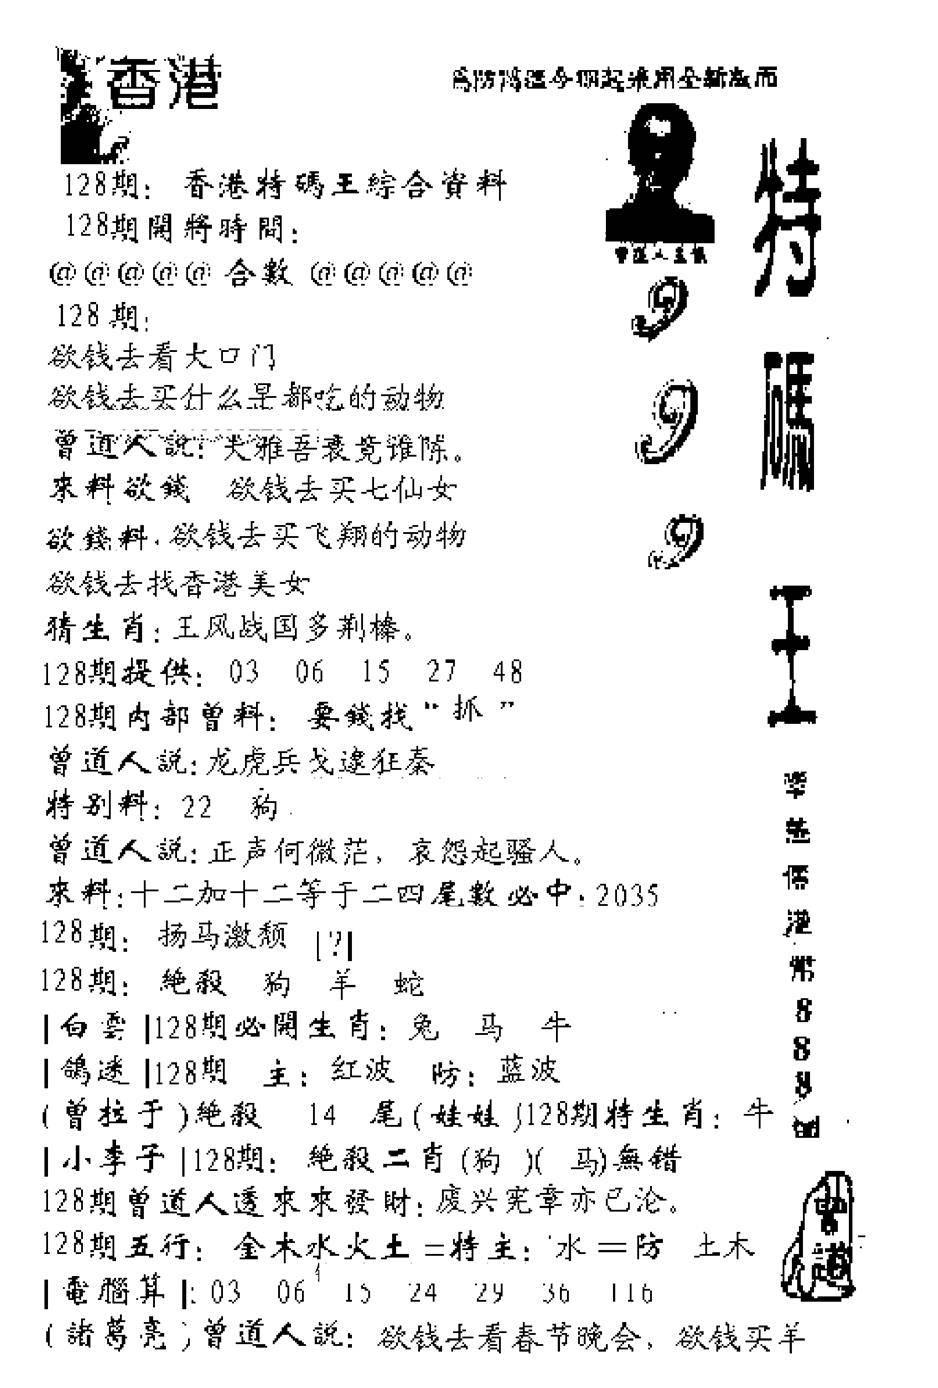 香港
為防偽區今期起采用全新版面
128期： 香港特碼王綜合資料
128期開將時間：
@@@@@ 合數 @@@@@
128期：
欲钱去看大口门
欲钱去买什么是都吃的动物
曾道人說：大雅吾衰竟谁陈。
來料欲錢 欲钱去买七仙女
欲錢料. 欲钱去买飞翔的动物
欲钱去找香港美女
猜生肖：王风战国多荆榛。
128期提供： 03 06 15 27 48
128期内部曾料： 要錢找“抓”
曾道人說：龙虎兵戈逮狂秦
特别料：22 狗
曾道人說：正声何微茫，哀怨起骚人。
來料：十二加十二等于二四尾數必中：2035
128期： 扬马激颓 |?|
128期： 絶殺 狗 羊 蛇
|白雲|128期必開生肖：兔 马 牛
|鴿迷|128期 主：红波 防：蓝波
(曾拉于)絶殺 14 尾(娃娃)128期特生肖：牛
|小李子|128期： 絶殺二肖(狗 )( 马)無错
128期曾道人透來來發財：废兴宪章亦已沦。
128期五行： 金木水火土=特主：水=防 土木
|電腦算|：03 06 15 24 29 36 116
(諸葛亮)曾道人說： 欲钱去看春节晚会，欲钱买羊
曾道人主供
9
9
9
特
碼
王
港
幣
8
8
8
曾道